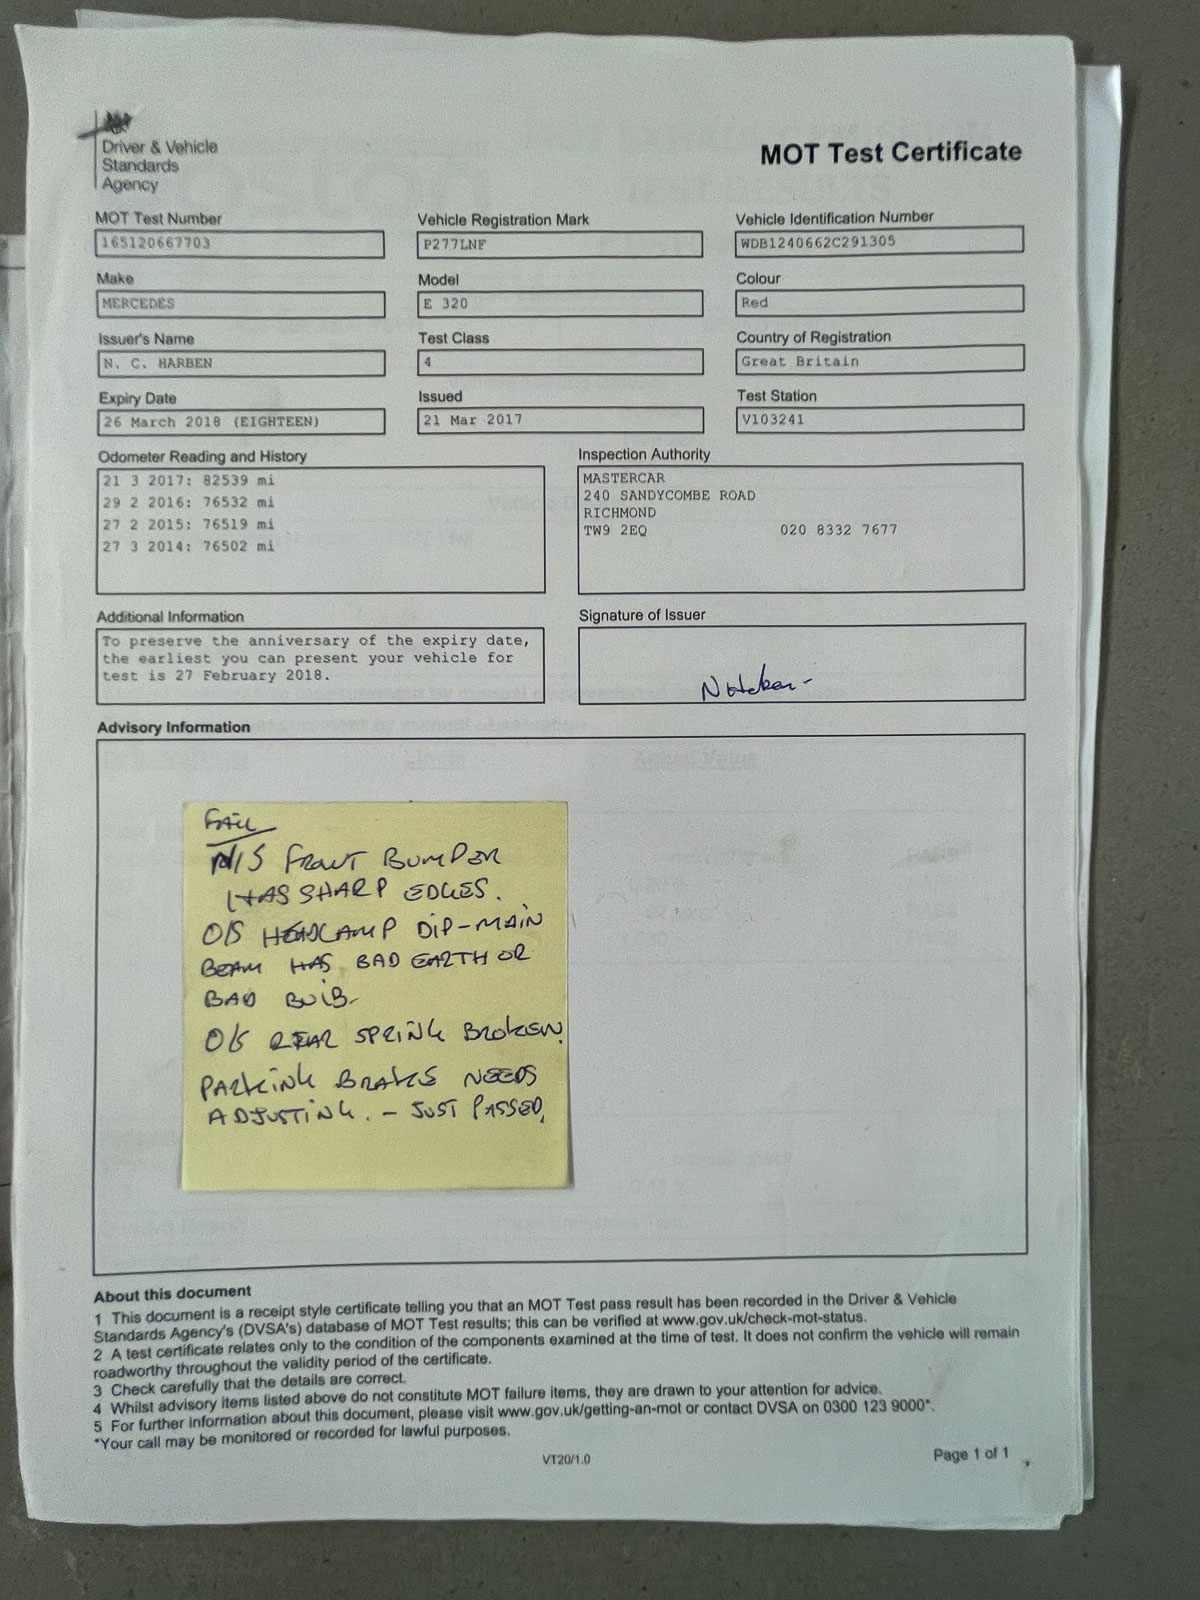 Driver & Vehicle
Standards
Agency
MOT Test Certificate
MOT Test Number
165120667703
Vehicle Registration Mark
P277LNF
Vehicle Identification Number
WDB1240662C291305
Make
MERCEDES
Model
E 320
Colour
Red
Issuer's Name
N. C. HARBEN
Test Class
4
Country of Registration
Great Britain
Expiry Date
26 March 2018 (EIGHTEEN)
Issued
21 Mar 2017
Test Station
V103241
Odometer Reading and History
21 3 2017: 82539 mi
29 2 2016: 76532 mi
27 2 2015: 76519 mi
27 3 2014: 76502 mi
Inspection Authority
MASTERCAR
240 SANDYCOMBE ROAD
RICHMOND
TW9 2EQ 020 8332 7677
Additional Information
To preserve the anniversary of the expiry date,
the earliest you can present your vehicle for
test is 27 February 2018.
Signature of Issuer
Advisory Information
FAIL
N/S FRONT BUMPER
HAS SHARP EDGES.
O/S HEADLAMP DIP-MAIN
BEAM HAS BAD EARTH OR
BAD BULB-
O/S REAR SPRING BROKEN.
PARKING BRAKE NEEDS
ADJUSTING. - JUST PASSED.
About this document
1 This document is a receipt style certificate telling you that an MOT Test pass result has been recorded in the Driver & Vehicle
Standards Agency's (DVSA's) database of MOT Test results; this can be verified at www.gov.uk/check-mot-status.
2 A test certificate relates only to the condition of the components examined at the time of test. It does not confirm the vehicle will remain
roadworthy throughout the validity period of the certificate.
3 Check carefully that the details are correct.
4 Whilst advisory items listed above do not constitute MOT failure items, they are drawn to your attention for advice.
5 For further information about this document, please visit www.gov.uk/getting-an-mot or contact DVSA on 0300 123 9000*.
*Your call may be monitored or recorded for lawful purposes.
VT20/1.0
Page 1 of 1